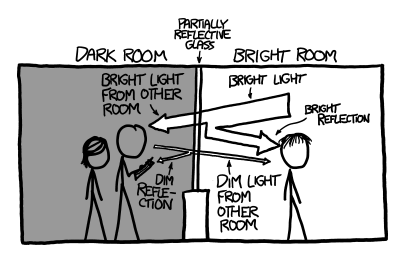 PARTIALLY
REFLECTIVE
GLASS
DARK ROOM
BRIGHT ROOM
BRIGHT LIGHT
FROM OTHER
ROOM
BRIGHT LIGHT
BRIGHT
REFLECTION
DIM
REFLE-
CTION
DIM LIGHT
FROM
OTHER
ROOM